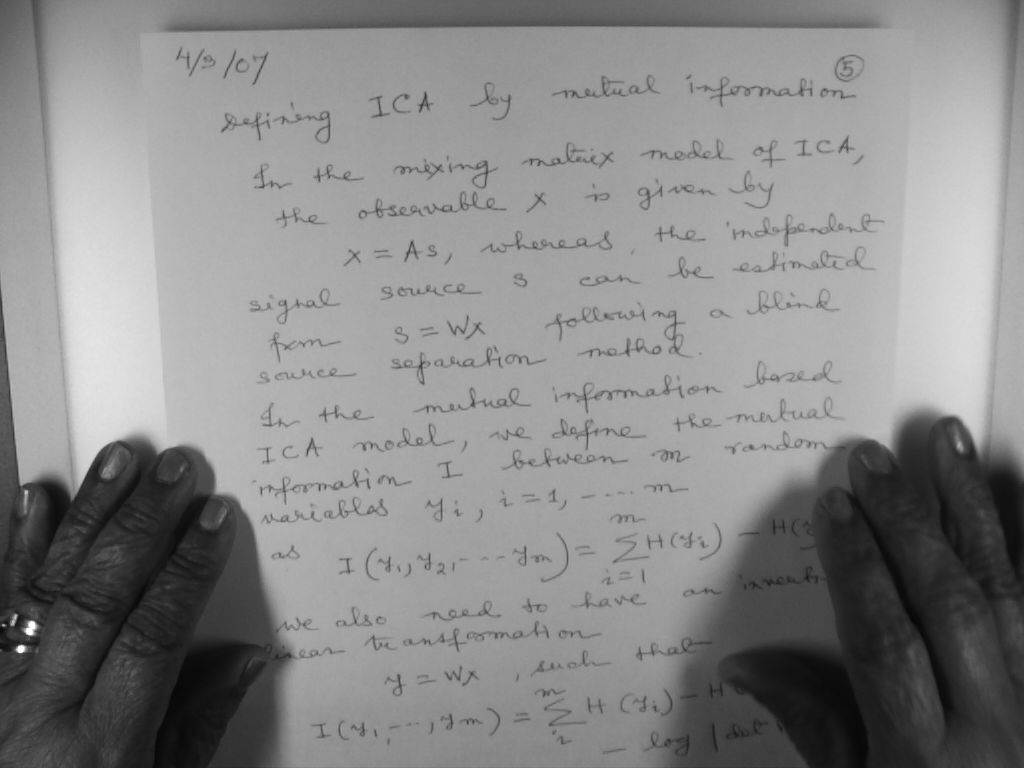 4/9/07
5
Defining ICA by mutual information
In the mixing matrix model of ICA,
the observable x is given by
x = As, whereas, the independent
signal source s can be estimated
from s = Wx following a blind
source separation method.
In the mutual information based
ICA model, we define the mutual
information I between m random
variables yi, i = 1, ---... m
as I(y1, y2, ---- ym) = m∑i=1 H(yi) - H(y
we also need to have an
linear transformation
y = Wx, such that
I(y1, ---, ym) = m∑i H(yi) - H
- log | det